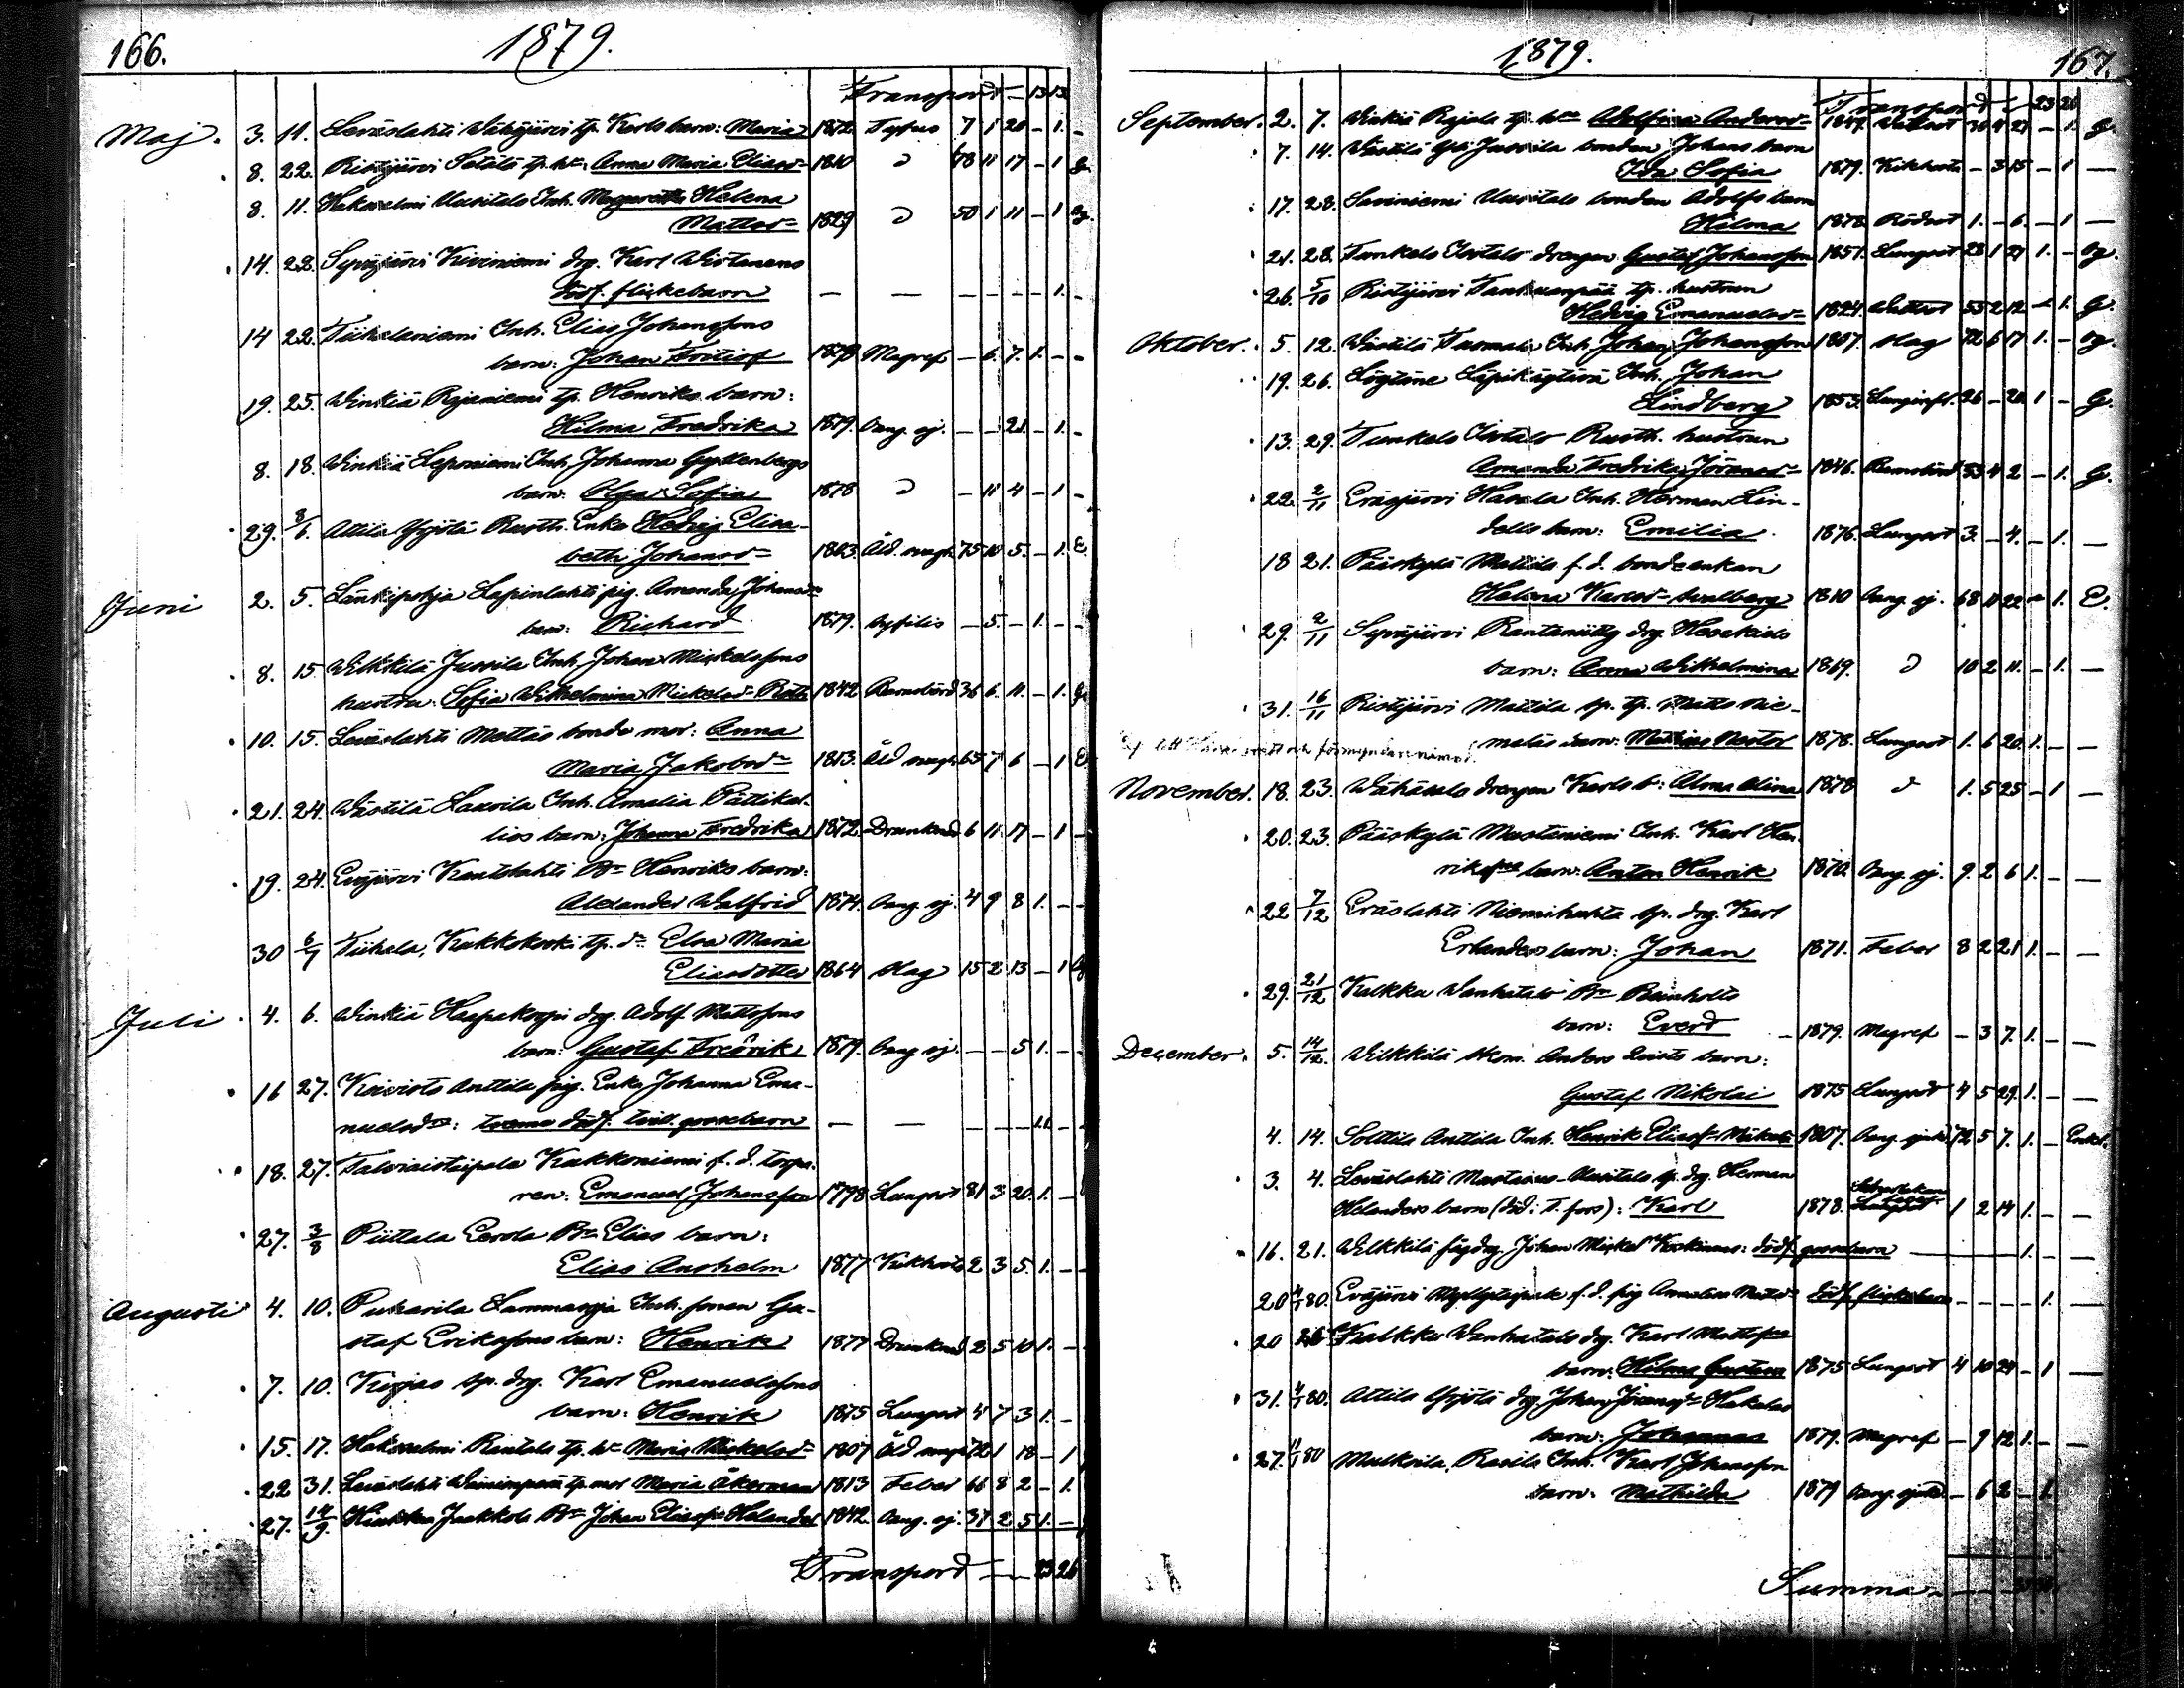 166.
1879.
Transport — 13 13
Maj. 3. 11. Leväslahti Wähäjärvi tp. Karls barn: Maria 1872. Tyfus 7 1 20 — 1. —
8. 22. Ristijärvi Satala tp. h:u: Anna Maria Eliasd:r 1810 d 78 11 17 — 1 G.
8. 11. Hakosalmi Uusitalo Inh. Margaretha Helena
Mattsd:r 1829 d 50 1 11 — 1 og.
14. 22. Syväjärvi Kiviniemi drg. Karl Wirtanens
dödf. flickebarn — — — — — — 1. —
14 22. Tiihalaniemi Inh. Elias Johanssons
barn: Johan Fritiof 1878 Magref — 6. 7. 1. — —
19. 25. Winkiä Rajaniemi tp. Henriks barn:
Hilma Fredrika 1879. Oang. sj. — — 21. — 1. —
8. 18. Winkiä Leponiemi Inh. Johanna Gyllenbergs
barn: Olga Sofia 1878 d — 11 4 — 1 —
29. 8/6. Attila Yrjölä Rusth. Enka Hedvig Elisa-
beth Johansd:r 1803. Åld. svagh. 75 10 5. — 1. E.
Juni 2. 5. Länkipohja Lapinlahti pig. Amanda Johansd:rs
barn: Richard 1879. Syfilis — 5. — 1. — —
8. 15 Wilkkilä Jussila Inh. Johan Mickelssons
hustru: Sofia Wilhelmina Mickelsd:r 1842 Barnsbörd 36 6. 11. — 1. G.
10. 15. Leväslahti Mattas bonde mor: Anna
Maria Jakobsd:r 1813. Åld svagh 65 7 6 — 1 E
21. 24. Wästilä Laurila Inh. Amalia Pättikal-
lios barn: Johanna Fredrika 1872 Drunknad 6 11 17 — 1 —
19. 24. Eväjärvi Kautolahti B:n Henriks barn:
Alexander Walfrid 1874. Oang. sj. 4 9 8 1. — —
30 6/7 Tiihala, Kukkokoski tp. d:r Elva Maria
Eliasdotter 1864 Slag 15 2 13 — 1
Juli 4. 6. Winkiä Haapakorpi drg. Adolf Mattssons
barn: Gustaf Fredrik 1879. Oang. sj. — — 5 1. — —
16 27. Koivisto Anttila pig. Enka Johanna Ema-
nuelsd:r: tvenne dödf. tvill. gossebarn — — — — — 11. —
18. 27. Talviaistaipale Kukkoniemi f. d. torpa-
ren: Emanuel Johansson 1798 Lungsot 81 3 20. 1. —
27. 3/8 Piittala Eerola B:n Elias barn:
Elias Anshelm 1877 Kikhosta 2 3 5. 1. — —
Augusti 4. 10. Puharila Lammasoja Inh. sonen Gu-
staf Erikssons barn: Henrik 1877 Drunknad 2 5 10 1. —
7. 10. sp. drg. Karl Emanuelssons
barn: Henrik 1875 Lungsot 4 7 3 1. —
15. 17. Hakosalmi Rantala tp. h:u Maria Mickelsd:r 1807 Åld svagh 72 1 18 — 1
22 31. Leväslahti tp. mor Maria Åkerman 1813 Feber 66 8 2 — 1.
27. 14/9. Jaakkola B:n Johan Eliass:n Helander 1842. Oang. sj. 37 2 5 1. —
Transport — — 23 26
1879.
167.
Transport — 23 26
September. 2. 7. Winkiä Rajala tp. h:u Adolfina Andersd:r 1849. Wattsot 30 4 27 — 1. G.
7. 14. Wästilä Yli Jussila bonden Johans barn
Ida Sofia 1879. Kikhosta — 3 15 — 1 —
17. 28. Saviniemi Uusitalo bonden Adolfs barn
Hilma 1878. Rödsot 1. — 6. — 1 —
21. 28. Tunkelo Isotalo drengen Gustaf Johansson 1851. Lungsot 28 1 27 1. — og.
26. 5/10 Ristijärvi Tanhuanpää tp. hustrun
Hedvig Emanuelsd:r 1824. Wattsot 55 2 12 — 1. G.
Oktober. 5. 12. Wästilä Tuomala Inh. Johan Johansson 1807. Slag 72 6 17 1. — og.
19. 26. Inh. Johan
Lindberg 1853. Lunginfl. 26 — 20. 1 — G.
13. 29. Tunkelo Isotalo Rusth. hustrun
Amanda Fredrika Göransd:r 1846. Barnsbörd 33 4 2 — 1. G.
22. 2/11 Eräsjärvi Havala Inh. Herman Lin-
dells barn: Emilia 1876. Lungsot 3. — 4. — 1. —
18 21. Pääskylä Mattila f. d. bondeenkan
Helena Karlsd:r Svalberg 1810 Oang. sj. 68 11 22 — 1. E.
29. 2/11 Syväjärvi Rantaniitty drg. Hesekiels
barn: Anna Wilhelmina 1869. d 10 2 11. — 1. —
31. 16/11 Ristijärvi Mattila sp. tp. Matts Nie-
meläs barn: Mathias Nestor 1878. Lungsot 1. 6 20. 1. — —
November. 18. 23. Wähäsalo drengen Karls b: Alma Alina 1878 d 1. 5 25 — 1 —
20. 23. Pääskylä Mustaniemi Inh. Karl Hen-
rikss:ns barn: Anton Henrik 1870. Oang. sj. 9. 2 6 1. — —
22 7/12 Eräslahti Niemihuhta sp. drg. Karl
Erlanders barn: Johan 1871. Feber 8 2 21 1. — —
29. 21/12 Kalkku Wanhatalo B:n Reinholts
barn: Everd 1879. Magref — 3 7. 1. —
December. 5. 14/12. Wilkkilä Skom. Anders Qvists barn:
Gustaf Nikolai 1875 Lungsot 4 5 29. 1. — —
4. 14. Solttila Anttila Inh. Henrik Eliass:n 1807. Oang. sjukd. 72. 5 7. 1. — Enkl.
3. 4. Leväslahti Uusitalo sp. drg. Herman
Helanders barn (död: T.fors): Karl 1878. 1 2 14 1. — —
16. 21. Wilkkilä drg. Johan Mickel Koskinens: dödf. gossebarn — 1. —
20 4/1 80. Eväjärvi Myllytaipale f. d. pig Annalisa Mattsd:r dödf. flickebarn — — — — 1. —
20 26 Kalkku Wanhatalo drg. Karl Mattss:ns
barn: Hilma Gustava 1875 Lungsot 4 10 24 — 1
31. 4/1 80. Attila Yrjölä drg. Johan Göranss:n Hakalas
barn: Johannes 1879. Magref — 9 12 1. — —
27. 11/1 80 Mulkoila, Rasila Inh. Karl Johansson
barn: Mathilda 1879 Oang. sjukd. — 6 2 — 1.
Summa —